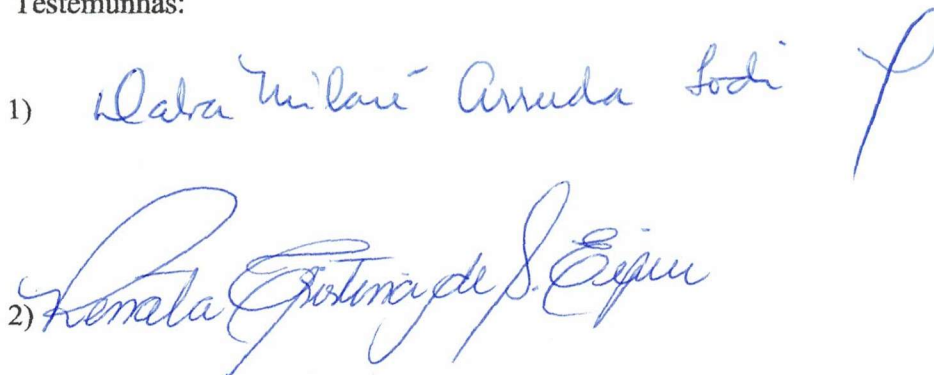 Testemunhas:
1) Dalva Milaré Arruda Lodi
2) Renata Cristina de S.